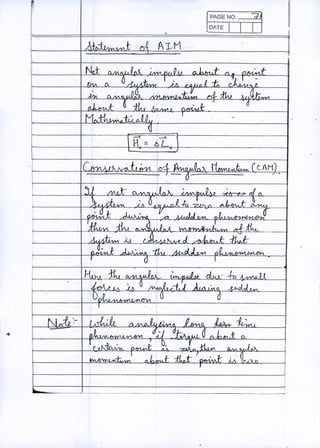 PAGE NO.
DATE
Statement of AIM
Net angular impulse about a point
on a system is equal to change
in angular momentum of the system
about the same point.
Mathematically.
H₀ = ΔL₀
Conservation of Angular Momentum (CAM)
If net angular impulse of a
system is equal to zero about any
point during a sudden phenomenon
then the angular momentum of the
system is conserved about that
point during the sudden phenomenon.
Here the angular impulse due to small
forces is neglected during sudden
phenomenon
Note:- While analysing long time
phenomenon, if torque about a
certain point is zero, then angular
momentum about that point is zero.